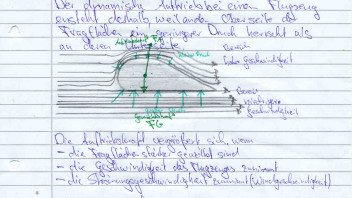 Der dynamische Auftrieb bei einem Flugzeug
entsteht deshalb weil an der Oberseite der
Tragfläche ein geringerer Druck herrscht als
an deren Unterseite
Bereich
hoher Geschwindigkeit
Bereich
niedrigerer
Geschwindigkeit
FG
Die Auftriebskraft vergrößert sich, wenn
- die Tragflächen stärker gewölbt sind
- die Geschwindigkeit des Flugzeuges zunimmt
- die Strömungsgeschwindigkeit zunimmt (Windgeschwindigkeit)